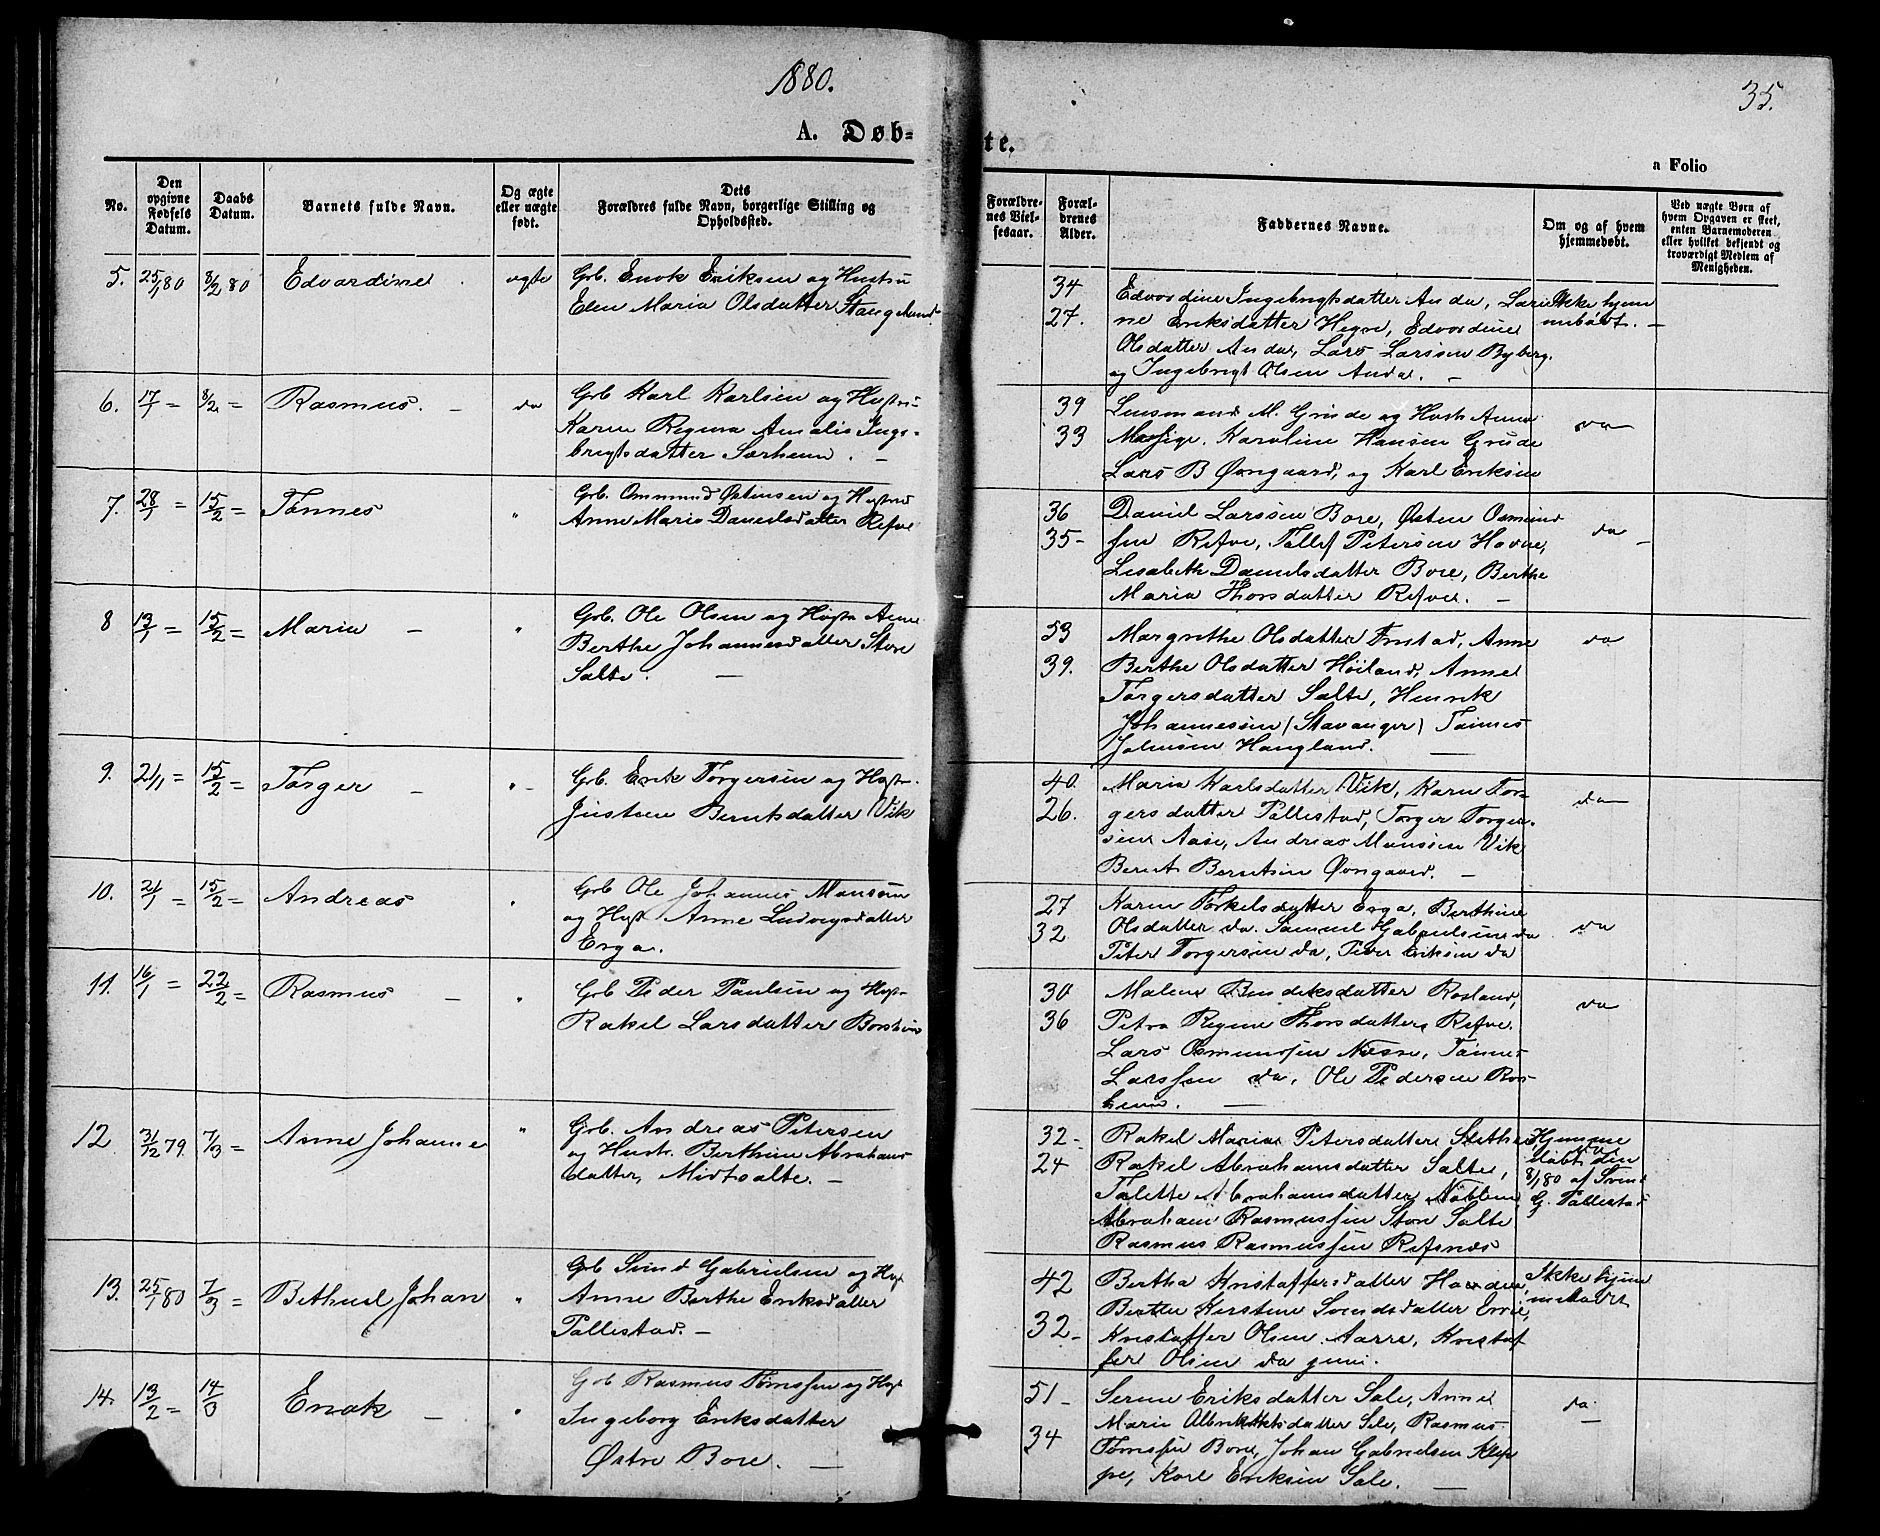 1880.
35.
A. Døb-
te.
a Folio
No.
Den opgivne Fødsels Datum.
Daabs Datum.
Barnets fulde Navn.
Og ægte eller uægte født.
Dets Forældres fulde Navn, borgerlige Stilling og Opholdsted.
Forældrenes Vielsesaar.
Forældrenes Alder.
Faddernes Navne.
Om og af hvem hjemmedøbt.
Ved uægte Børn af hvem Opgaven er skeet, enten Barnemoderen eller hvilket bekjendt og troværdigt Medlem af Menigheden.
5. 25/1 80 8/2 80 Edvardine ægte Grb. Enok Eriksen og Hustru
Elen Maria Olsdatter Stangeland
34
27.
Edvardine Ingebrigtsdatter Anda, Lari-
ne Eriksdatter Hegre, Edvardine
Olsdatter Anda, Lars Larssen Byberg,
og Ingebrigt Olsen Anda. –
Ikke hjem
medøbt. –
6. 17/1 = 8/2 = Rasmus. – da Grb Karl Karlsen og Hustru
Karen Regina Amalie Inge-
brigtsdatter Særheim. –
39
33
Lensmand M. Grude og Hustr Anna
Karoline Hansen Grude
Lars B Øvregaard, og Karl Eriksen
da
7. 28/1 = 15/2 = Tønnes " Grb. Ommund Østensen og Hustru
Anne Maria Danielsdatter Refve
36
35-
Daniel Larssen Bore, Østen Osmund
sen Refve, Tollef Petersen Hovne,
Lisabeth Danielsdatter Bore, Berthe
Maria Thorsdatter Refve. –
da –
8 13/1 = 15/2 = Maria – " Grb. Ole Olsen og Hustr Anne
Berthe Johannesdatter Store
Salte. –
53
39.
Margrethe Olsdatter Friestad, Anne
Berthe Olsdatter Høiland, Anne
Torgersdatter Salte, Henrik
Johannessen (Stavanger) Tønnes
Johnsen Haugland. –
da
9. 21/1 = 15/2 = Torger – " Grb. Erik Torgersen og Hustr.
Justine Berntsdatter Vik
40.
26.
Maria Karlsdatter Vik, Karen Tor-
gersdatter Pollestad, Torger Torger-
sen Aase, Andreas Monssen Vik
Bernt Berntsen Øvregaard. –
da
10. 21/1 = 15/2 = Andreas " Grb Ole Johannes Monssen
og Hustr Anne Ludvigsdatter
Erga.
27
32
Karen Torkelsdatter Erga, Berthine
Olsdatter da. Samuel Gabrielsen da
Peter Torgersen da, Peder Eriksen da
da
11. 16/1 = 22/2 = Rasmus – " Grb Peder Paulsen og Hustr
Rakel Larsdatter Borsheim
30
36
Malene Bendiksdatter Rosland,
Petra Regine Thorsdatter Refve.
Lars Osmundsen Næsse, Tønnes
Larssen da, Ole Pedersen Bors-
heim. –
da
12 31/12 79. 7/3 = Anne Johanne " Grb. Andreas Petersen
og Hustr. Berthine Abrahams
datter, Midtsalte. –
32-
24
Rakel Maria Petersdatter
Rakel Abrahamsdatter Salte,
Talette Abrahamsdatter
Abraham Rasmussen Store Salte
Rasmus Rasmussen Refsnæs
Hjemme
døbt den
8/1 80 af Svend
G. Pollestad
13. 25/1 80 7/3 = Bethuel Johan " Grb Svend Gabrielsen og Hustr
Anne Berthe Eriksdatter
Pollestad. –
42
32-
Bertha Kristoffersdatter
Berthe Kirstine Svendsdatter
Kristoffer Olsen Aarre, Kristof
fer Olsen da juni.
Ikke hjem
medøbt
14. 13/2 = 14/3 Enok – " Grb Rasmus Tønnesen og Hustr
Ingeborg Eriksdatter
Østre Bore. –
51-
34
Serine Eriksdatter Sele, Anne
Marie Albrektsdatter Sele, Rasmus
Tønnesen Bore, Johan Gabrielsen Klep
pe, Karl Eriksen Sele. –
da.